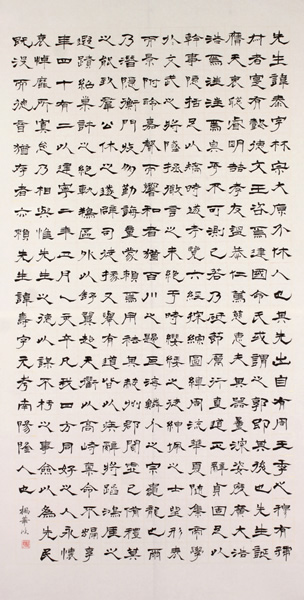 先生諱泰字林宗太原介休人也其先出自有周王季之穆有虢
叔者寔有懿德文王咨焉建國命氏或謂之郭即其後也先生誕
膺天衷聰睿明哲孝友溫恭仁篤慈惠夫其器量弘深姿度廣大
浩浩焉汪汪焉奧乎不可測已若乃砥節厲行直道正辭貞固足以
幹事隱括足以矯時遂考覽六經探綜圖緯周流華夏隨集帝學
收文武之將墜拯微言之未絕于時纓緌之徒紳佩之士望形表
而景附聆嘉聲而響和者猶百川之歸巨海鱗介之宗龜龍也爾
乃潛隱衡門收朋勤誨童蒙賴焉用祛其蔽州郡聞德虛己備禮莫
之能致群公休之遂辟司徒掾又舉有道皆以疾辭將蹈鴻涯之
遐跡紹巢許之絕軌翔區外以舒翼超天衢以高峙稟命不融享
年四十有二以建寧二年正月乙亥卒凡我四方同好之人永懷
哀悼靡所寘念乃相與惟先生之德以謀不朽之事僉以為先民
既沒而德音猶存者亦賴先生諱壽字元考南陽隆人也